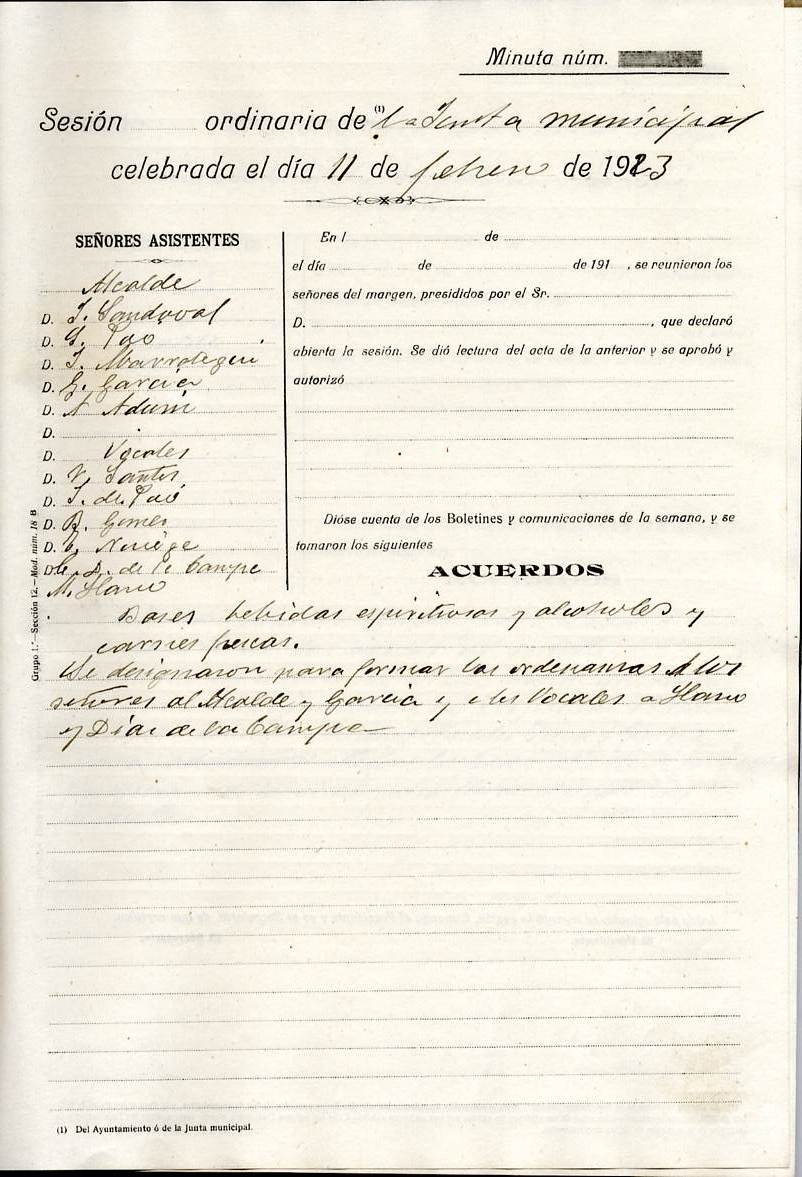 Minuta núm.
Sesión ordinaria de (1) la Junta municipal
celebrada el día 11 de febrero de 1923
SEÑORES ASISTENTES
Alcalde
D. J. Sandoval
D. G. Poo
D. J. Marroteguí
D. G. García
D. A
D.
D. Vocales
D. V. Santos
D. J. de Poo
D. R. Gomes
D. Noriega
D. C. D. de la Campa
M. Llano
En l de
el día de de 191 , se reunieron los
señores del margen, presididos por el Sr.
D. , que declaró
abierta la sesión. Se dió lectura del acta de la anterior y se aprobó y
autorizó
Dióse cuenta de los Boletines y comunicaciones de la semana, y se
tomaron los siguientes
ACUERDOS
Bases bebidas espirituosas y alcoholes y
carnes frescas.
Se designaron para formar las ordenanzas A los
señores al Alcalde y García y a los Vocales a Llano
y Díaz de la Campa
Grupo 1.º—Sección 12.—Mod. núm. 18 B
(1) Del Ayuntamiento ó de la Junta municipal.